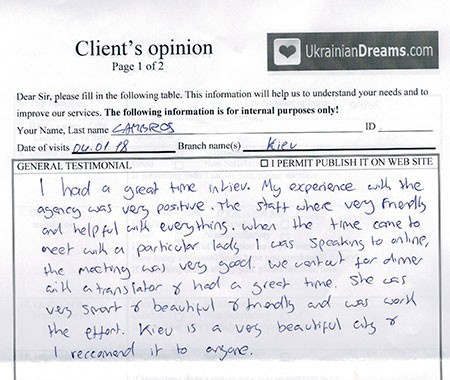 Client's opinion
Page 1 of 2
UkrainianDreams.com
Dear Sir, please fill in the following table. This information will help us to understand your needs and to
improve our services. The following information is for internal purposes only!
Your Name, Last name ID
Date of visits 04.01.18 Branch name(s) Kiev
GENERAL TESTIMONIAL ☐ I PERMIT PUBLISH IT ON WEB SITE
I had a great time in Kiev. My experience with the
agency was very positive. The staff where very friendly
and helpful with everything. When the time came to
meet with a particular lady I was speaking to online,
the meeting was very good. We went out for dinner
with a translator & had a great time. She was
very smart & beautiful & friendly and was worth
the effort. Kiev is a very beautiful city &
I reccomend it to anyone.